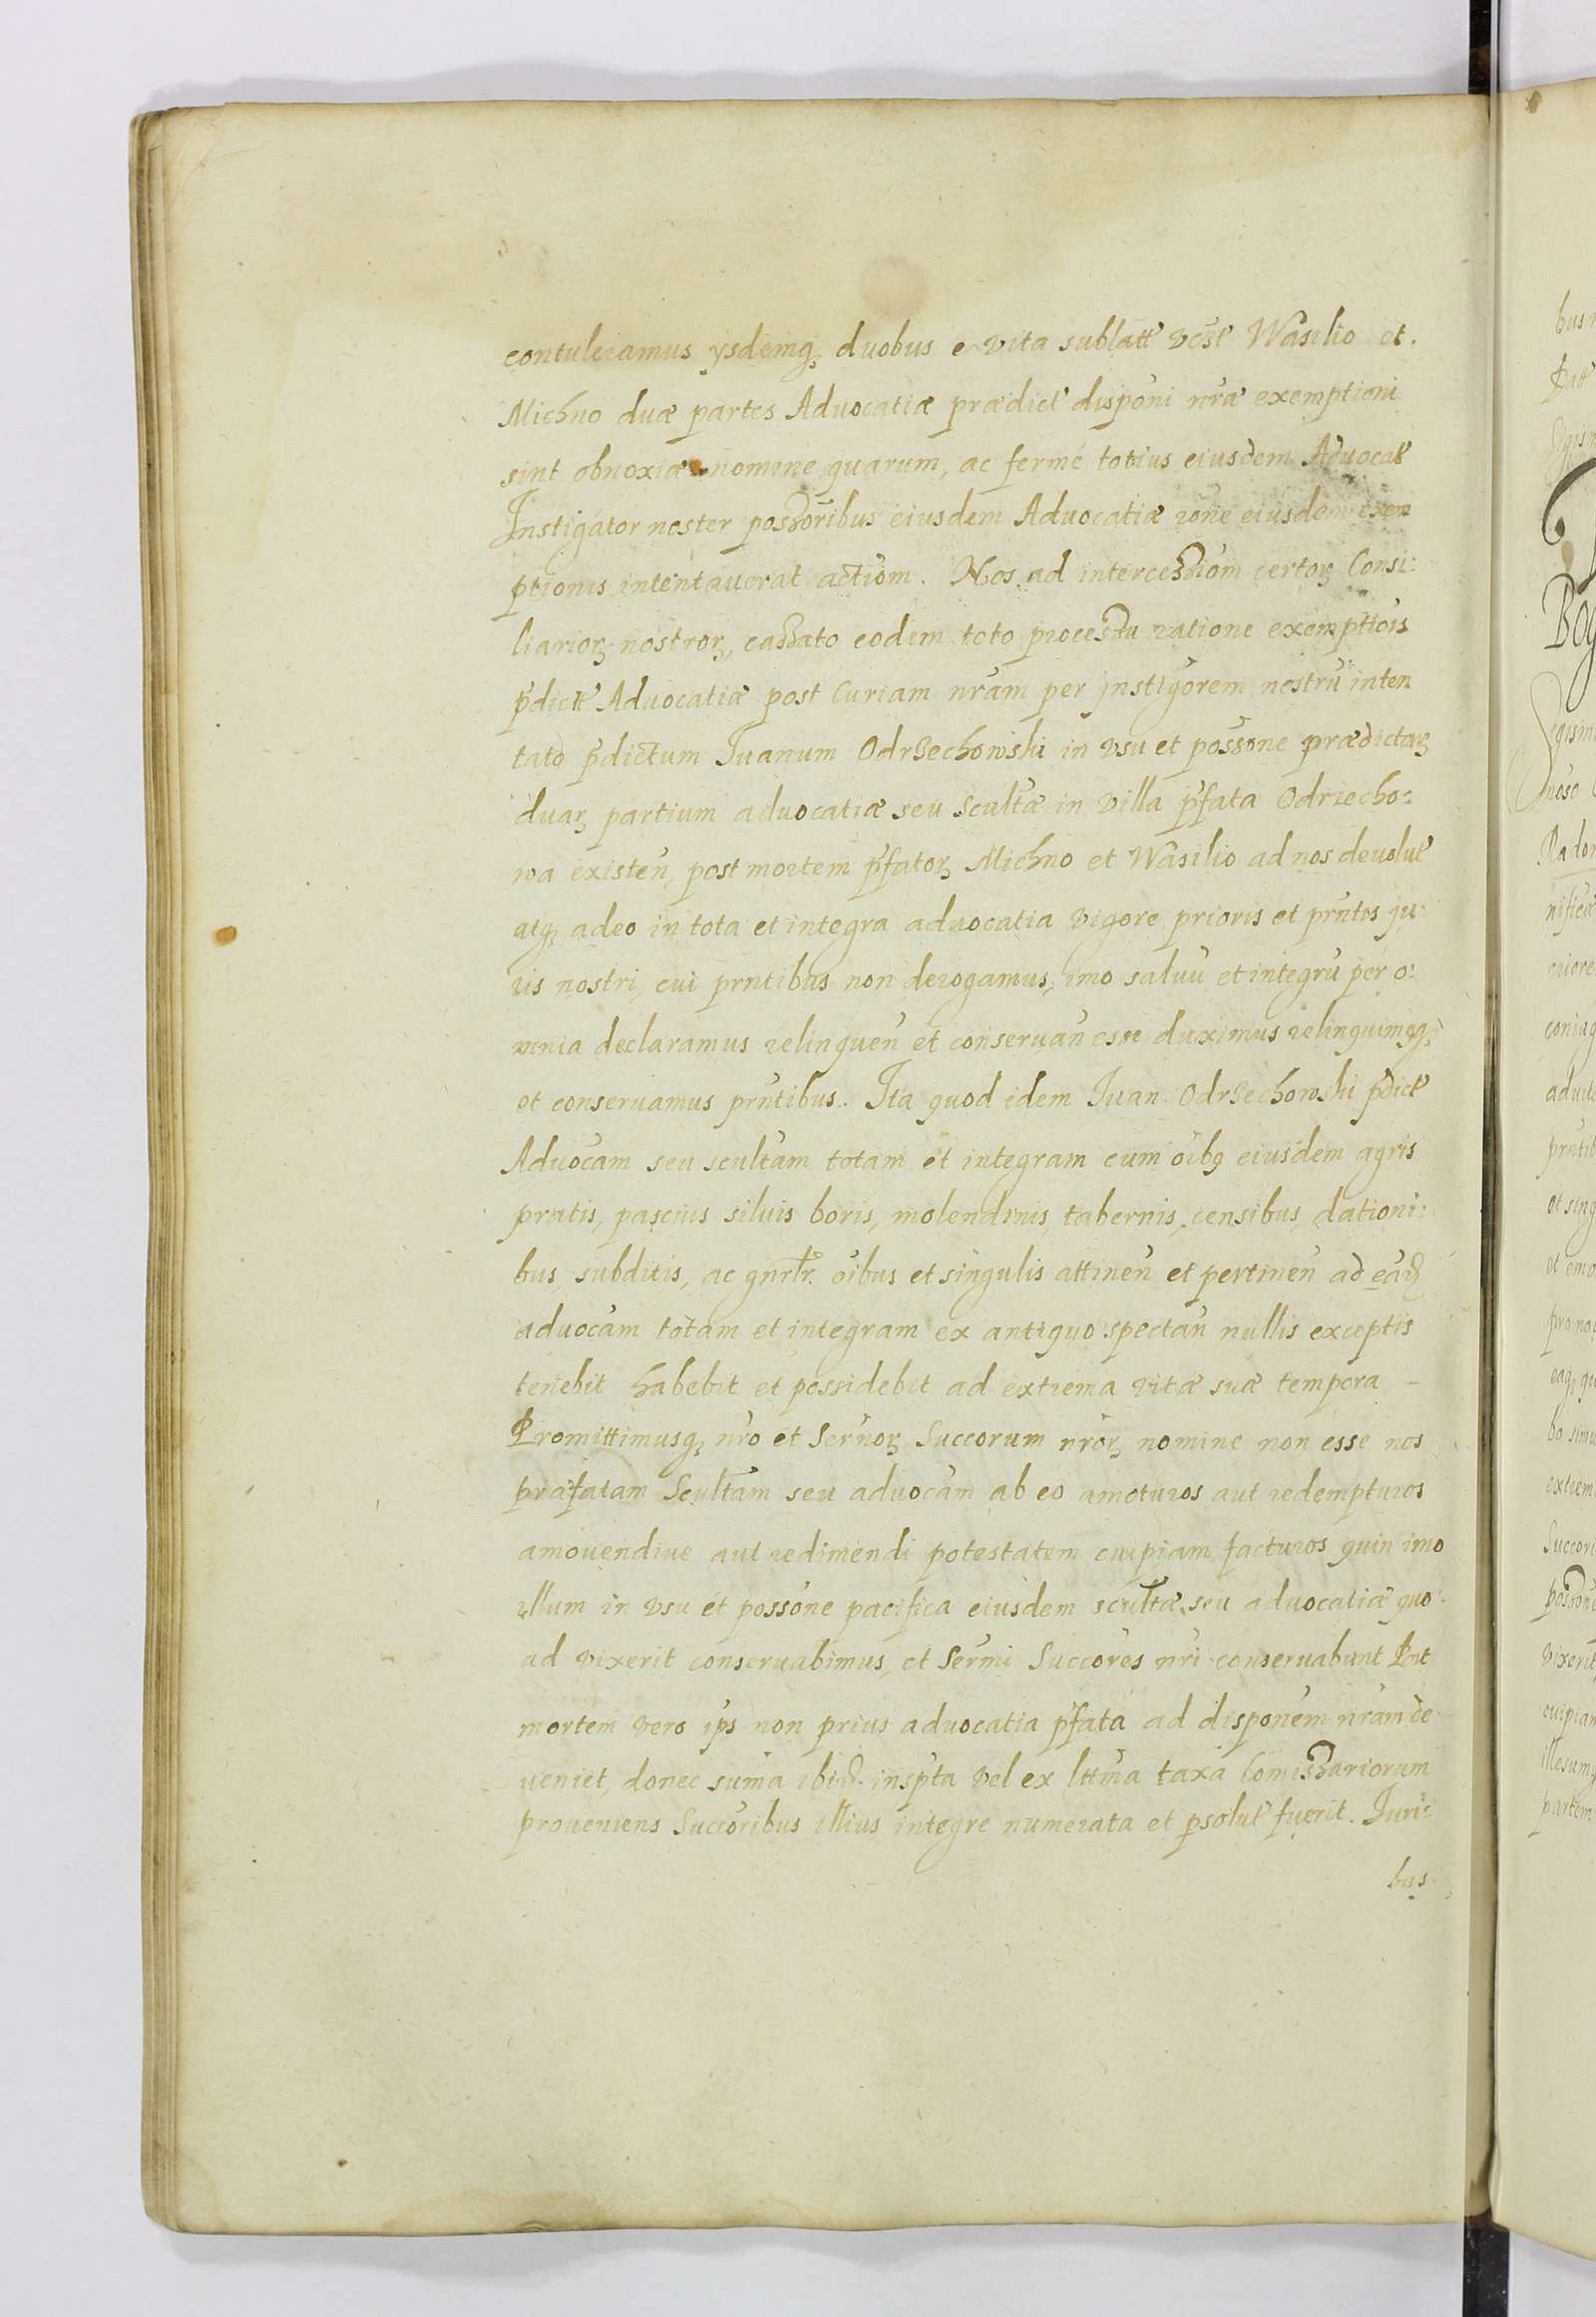 contuleramus ysdemq̃ duobus e vita sublatt̃ vest̃ Wasilio et.
Michno duæ partes Advocatiæ prædict̃ disponi nr̃æ exemptioni
sint obnoxiæ nomine quarum, ac fermé totius eiusdem Advocat̃
Instigator noster possõribus eiusdem Advocatiæ rõne eiusdem exem
ptionis intentauerat actiõm. Nos ad intercessiõm certoꝝ Consi:
liarioꝝ nostroꝝ, cassato eodem toto processu ratione exemptiõis
p̃dictt̃ Advocatiæ post Curiam nr̃am per jnstigõrem nostrũ inten
tato p̃dictum Iuanum OdrZechowski in vsu et possõne prædictaꝝ
duaꝝ partium advocatiæ seu Scultæ in villa p̃fata Odrzecho:
wa existeñ, post mortem p̃fatoꝝ Michno et Wasilio ad nos deuolut̃
atq̃ adeo in tota et integra advocatia vigore prioris et pr̃ntis ju:
ris nostri, cui prntibus non derogamus, imo saluũ et integrũ per o:
mnia declaramus relinqueñ et conseruañ esse duximus relinquimq̃
et conseruamus pr̃ntibus. Ita quod idem Iuan OdrZechowski p̃dict̃
Advocãm seu scultãm totam et integram cum oĩbꝯ eiusdem agris
pratis, pascius siluis boris, molendinis, tabernis, censibus, dationi:
bus, subditis, ac gnrlr̃. oĩbus et singulis attineñ et pertineñ ad eand̃
advocãm totam et integram ex antiquo spectañ nullis exceptis
tenebit habebit et possidebit ad extrema vitæ suæ tempora –
Promittimusq̃ nr̃o et Ser̃noꝝ Succorum nr̃oꝝ nomine non esse nos
præfatam Scultãm seu advocãm ab eo amoturos aut redempturos
amouendiue aut redimendi potestatem cuipiam facturos quin imo
illum in vsu et possõne pacifica eiusdem scultæ seu advocatiæ quo
ad vixerit conseruabimus, et Ser̃mi Succõres nr̃i conseruabunt Post
mortem vero ip̃s non prius advocatia p̃fata ad disponẽm nr̃am de
ueniet, donec sum̃a ibid̃. insp̃ta vel ex lttm̃a taxa Com̃issariorum
proueniens Succõribus illius integre numerata et p̃solut̃ fuerit. Iuri:
bus